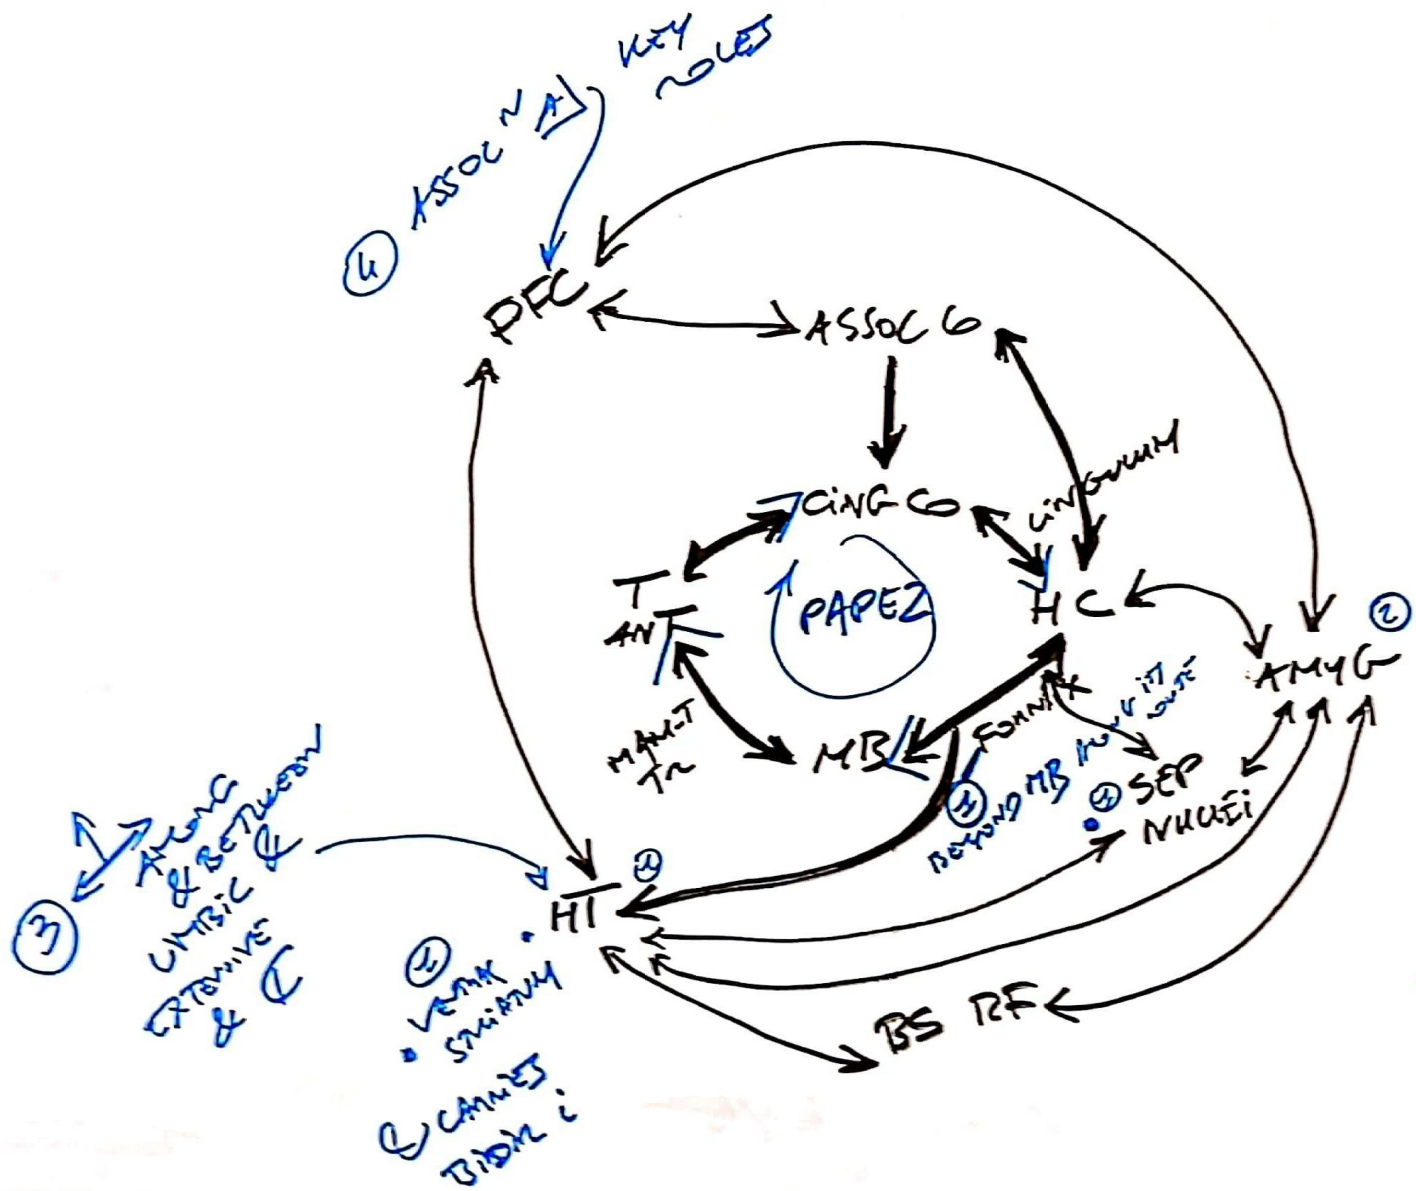 KEY
ROLES
ASSOC N A
4
PFC
ASSOC CO
CING CO
CINGULUM
T
ANT
PAPEZ
HC
2
AMYG
MAM-T
TR
MB
FORNIX
BEYOND MB
1
SEP
NUCLEI
AMONG
& BETWEEN
LIMBIC &
EXTENSIVE
&
3
HT
1
VENTR
STRIATUM
& CARRIES
BIDIR i
BS RF